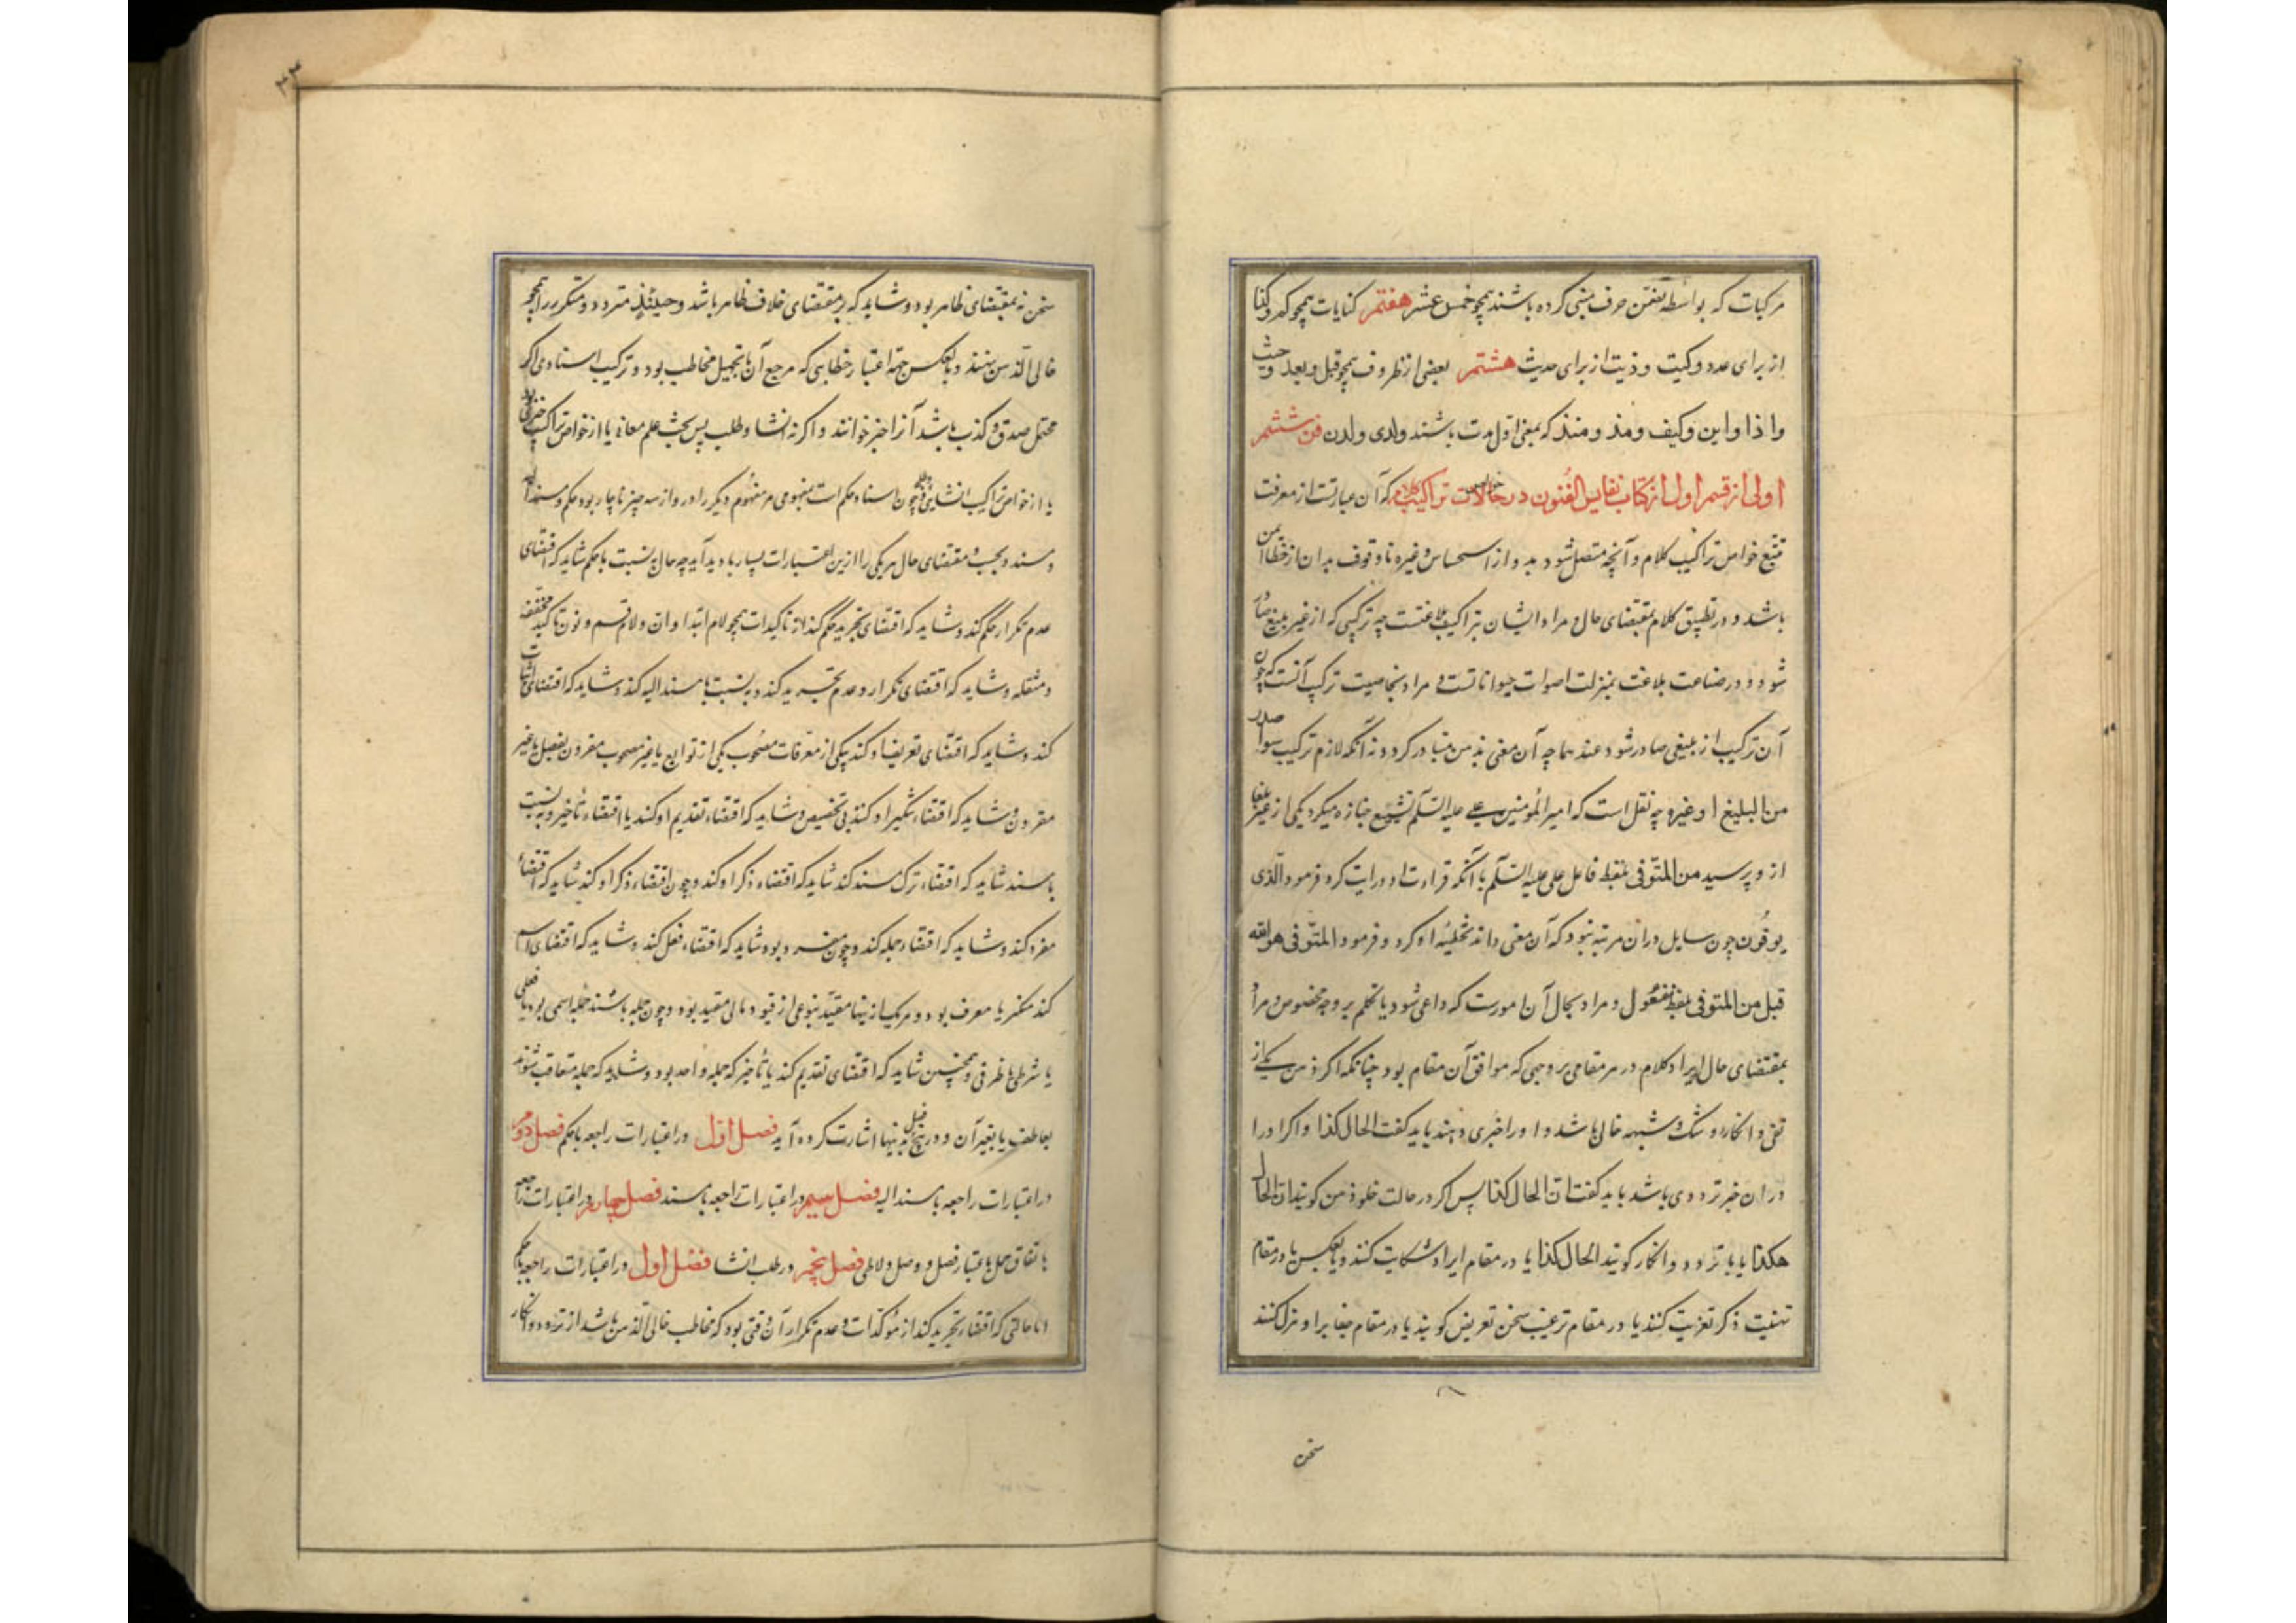 مرکبات که بواسطه تضمن حرف مبنی کرده باشند همچو خمسة عشر هفتم کنایات همچو کم و کذا
از برای عدد و کیت و ذیت از برای حدیث هشتم بعضی از ظروف همچو قبل و بعد و حیث
و اذا و این و کیف و مذ و منذ که بمعنی اول مدت باشند ولدی ولدن فن ششم
اولی از قسم اول از کتاب نفایس الفنون در خواص تراکیب کلام که آن عبارتست از معرفت
تتبع خواص تراکیب کلام و آنچه متصل شود بدو از استحسان و غیره تا وقوف بدان از خطا ایمن
باشد و در تطبیق کلام بمقتضای حال و مراد ایشان بتراکیب بلاغتست چه ترکیبی که از غیر بلیغ صادر
شود در صناعت بلاغت بمنزلت اصوات حیواناتست و مراد بخاصیت ترکیب آنست که چون
آن ترکیب از بلیغی صادر شود عند سماعه آن معنی بذهن متبادر گردد نه آنکه لازم ترکیب سواء صدر
من البلیغ او غیره چه نقل است که امیر المؤمنین علی علیه السلم تشییع جنازه میکرد یکی از غیر بلغا
ازو پرسید من المتوفی بلفظ فاعل علی علیه السلم با آنکه قراءت او روایت کرد فرمود و الذی
یوفون چون سایل در آن مرتبه نبود که آن معنی داند تخطئه او کرد و فرمود المتوفی هو الله
قبل من المتوفی بلفظ مفعول و مراد بحال آن امورست که داعی شود با تکلم بر وجه مخصوص و مراد
بمقتضای حال ایراد کلام در هر مقامی بر وجهی که موافق آن مقام بود چنانکه اگر ذهن یکی از
نفی و انکار و شک و شبهه خالی باشد و او را خبری دهند باید گفت الحال کذا و اگر او را
در آن خبر ترددی باشد باید گفت ان الحال کذا پس اگر در حالت خلو ذهن گویند ان الحال
هکذا یا با تردد و انکار گویند الحال کذا یا در مقام ایراد شکایت کنند و یا بعکس یا در مقام
تهنیت ذکر تعزیت کنند یا در مقام ترغیب سخن تعریض گویند یا در مقام جد ایراد هزل کنند
سخن
سخن نه بمقتضای ظاهر بود و شاید که بر مقتضای خلاف ظاهر باشد و حینئذ متردد و منکر را همچو
خالی الذهن نهند و بالعکس جهة اعتبار خطابی که مرجع آن با تجهیل مخاطب بود و ترکیب اسنادی اگر
محتمل صدق و کذب باشد آنرا خبر خوانند و اگر نه انشا و طلب پس بحث علم معانی یا از خواص تراکیب خبری بود
یا از خواص تراکیب انشایی و چون اسناد حکم است بمفهومی مر مفهوم دیگر را درو از سه چیز ناچار بود حکم و مسند الیه
و مسند و بحسب مقتضای حال هر یکی را ازین اعتبارات بسیار بادید آید چه حال نسبت با حکم شاید که اقتضای
عدم تکرار حکم کند و شاید که اقتضای تجرید حکم کند از تاکیدات همچو لام ابتدا و ان و لام قسم و نون تاکید مخففه
و مثقله و شاید که اقتضای تکرار و عدم تجرید کند و نسبت با مسند الیه کند و شاید که اقتضای اثبات
کند و شاید که اقتضای تعریف او کند بیکی از معرفات مصحوب یکی از توابع یا غیر مصحوب مقرون بفصل یا غیر
مقرون و شاید که اقتضاء تنکیر او کند بی تخصیص و شاید که اقتضاء تقدیم او کند یا اقتضاء تأخیر و به نسبت
با مسند شاید که اقتضاء ترک مسند کند شاید که اقتضاء ذکر او کند و چون اقتضاء ذکر او کند شاید که اقتضاء
مفرد کند و شاید که اقتضاء جمله کند و چون مفرد بود شاید که اقتضاء فعل کند و شاید که اقتضای اسم
کند منکر یا معرف بود و هر یک ازینها مقید بنوعی از قیود یا لی مقید بود و چون جمله باشد جمله اسمی بود یا فعلی
یا شرطی یا ظرفی و همچنین شاید که اقتضای تقدیم کند یا تأخیر که جمله واحد بود و شاید که جمله متعاقب شوند
بعاطف یا بغیر آن و در پنج فصل بدینها اشارت کرده آید فصل اول در اعتبارات راجعه با حکم فصل دوم
در اعتبارات راجعه با مسند الیه فصل سیم در اعتبارات راجعه با مسند فصل چهارم در اعتبارات راجعه
با اتفاق جمل باعتبار فصل و وصل فصل پنجم در طلب انشا فصل اول در اعتبارات راجعه با حکم
اما حالتی که اقتضاء تجرید کند از مؤکدات و عدم تکرار آن وقتی بود که مخاطب خالی الذهن باشد از تردد و انکار